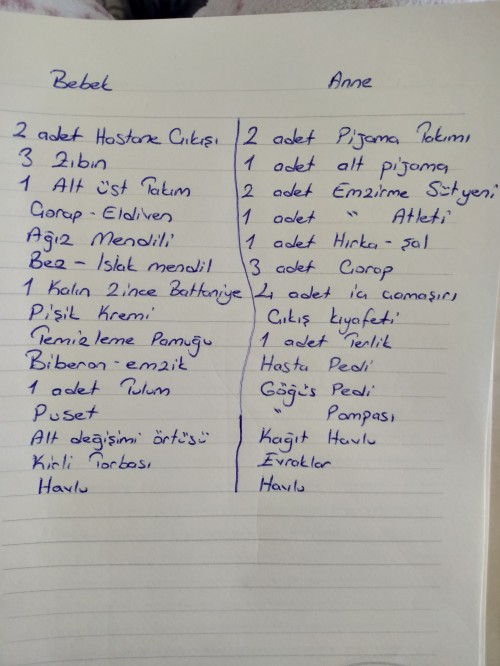 Bebek
2 adet Hastane Çıkışı
3 Zıbın
1 Alt üst Takım
Çorap - Eldiven
Ağız Mendili
Bez - Islak mendil
1 Kalın 2 ince Battaniye
Pişik Kremi
Temizleme Pamuğu
Biberon - emzik
1 adet Tulum
Puset
Alt değişimi örtüsü
Kirli Torbası
Havlu
Anne
2 adet Pijama Takımı
1 adet alt pijama
2 adet Emzirme Sütyeni
1 adet " Atleti
1 adet Hırka - şal
3 adet Çorap
4 adet iç çamaşırı
Çıkış kıyafeti
1 adet Terlik
Hasta Pedi
Göğüs Pedi
" Pompası
Kağıt Havlu
Evraklar
Havlu